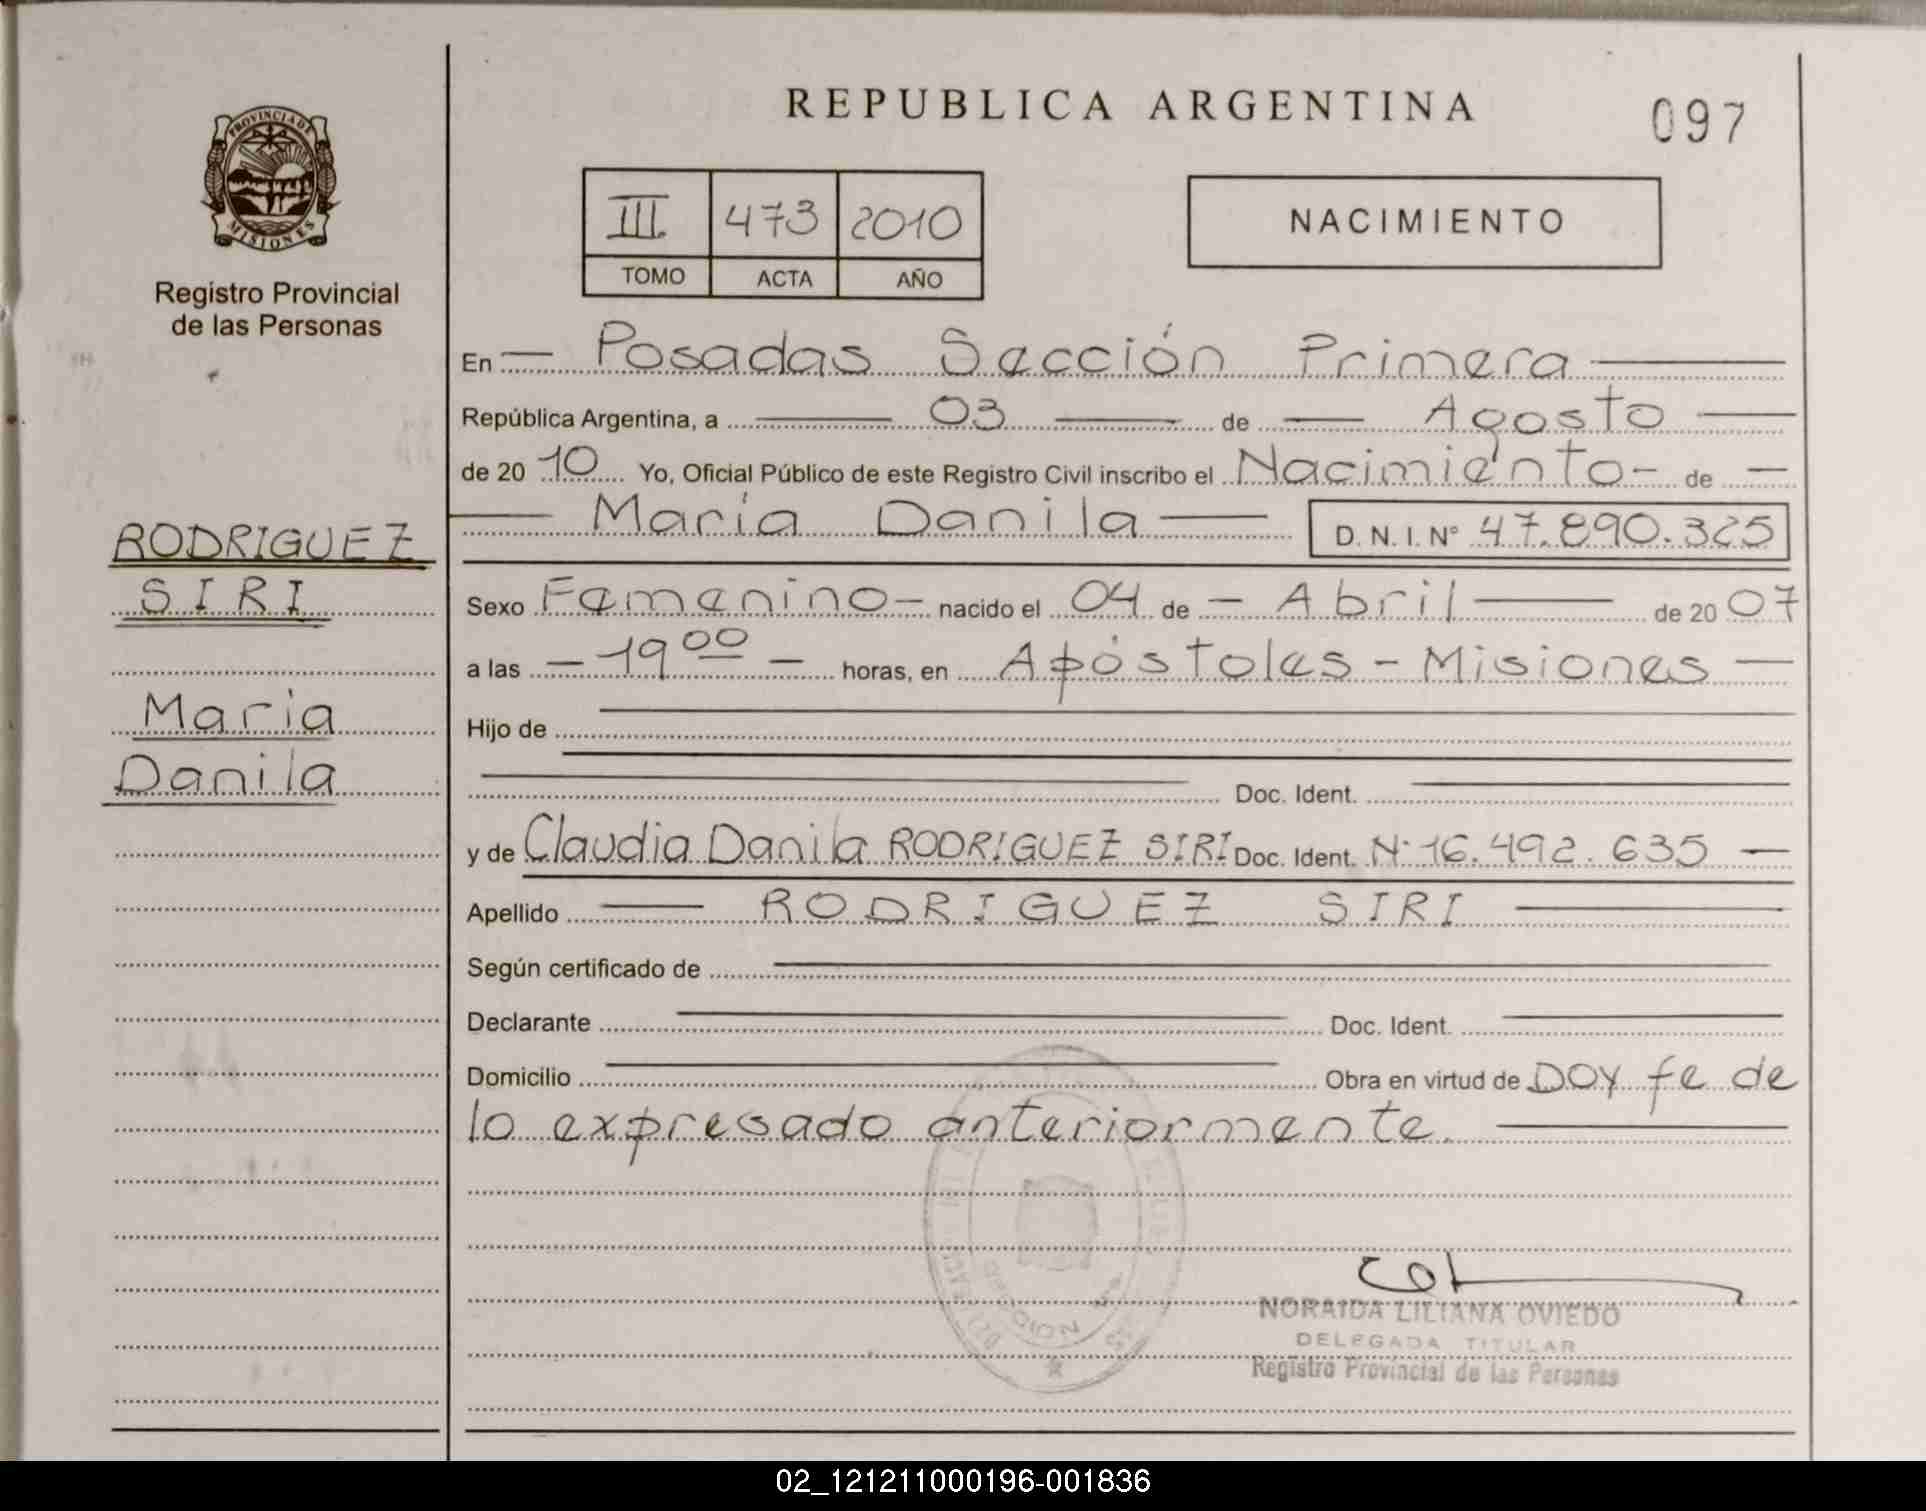 REPUBLICA ARGENTINA
097
PROVINCIA DE
MISIONES
Registro Provincial
de las Personas
III. 473 2010
TOMO ACTA AÑO
NACIMIENTO
En Posadas Sección Primera
República Argentina, a 03 de Agosto
de 20 10 Yo, Oficial Público de este Registro Civil inscribo el Nacimiento - de
María Danila D. N. I. N° 47.890.325
RODRIGUEZ
SIRI
María
Danila
Sexo Femenino - nacido el 04 de - Abril de 20 07
a las - 19 00 - horas, en Apóstoles - Misiones
Hijo de
Doc. Ident.
y de Claudia Danila RODRIGUEZ SIRI Doc. Ident. N° 16.492.635
Apellido RODRIGUEZ SIRI
Según certificado de
Declarante Doc. Ident.
Domicilio Obra en virtud de DOY fe de
lo expresado anteriormente.
NORAIDA LILIANA OVIEDO
DELEGADA TITULAR
Registro Provincial de las Personas
02_121211000196-001836